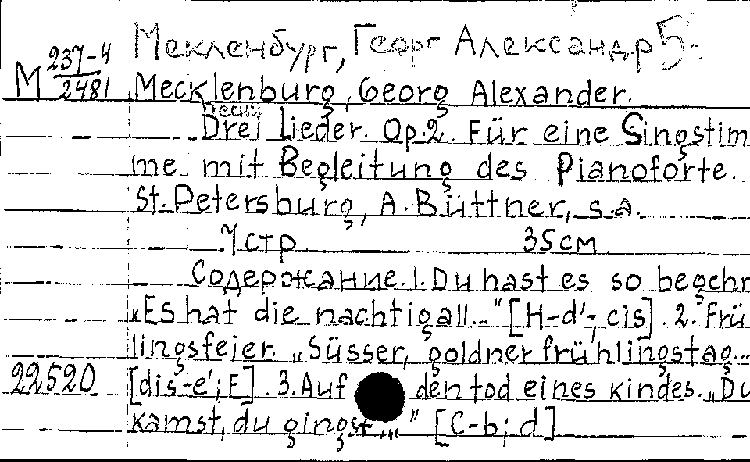 Мекленбург, Георг Александр 5.
М 237-4/2481
Mecklenburg, Georg Alexander.
песни
Drei Lieder. Op.2. Für eine Singstim
me mit Begleitung des Pianoforte.
St. Petersburg, A. Büttner, s.a.
7 стр 35 см
Содержание. 1. Du hast es so begehr
„Es hat die nachtigall..." [H-d'; cis]. 2. Frü
lingsfeier. „Süsser, goldner frühlingstag...
22520 [dis-e'; E]. 3. Auf den tod eines kindes. „Du
kamst, du gingst..." [C-b; d]